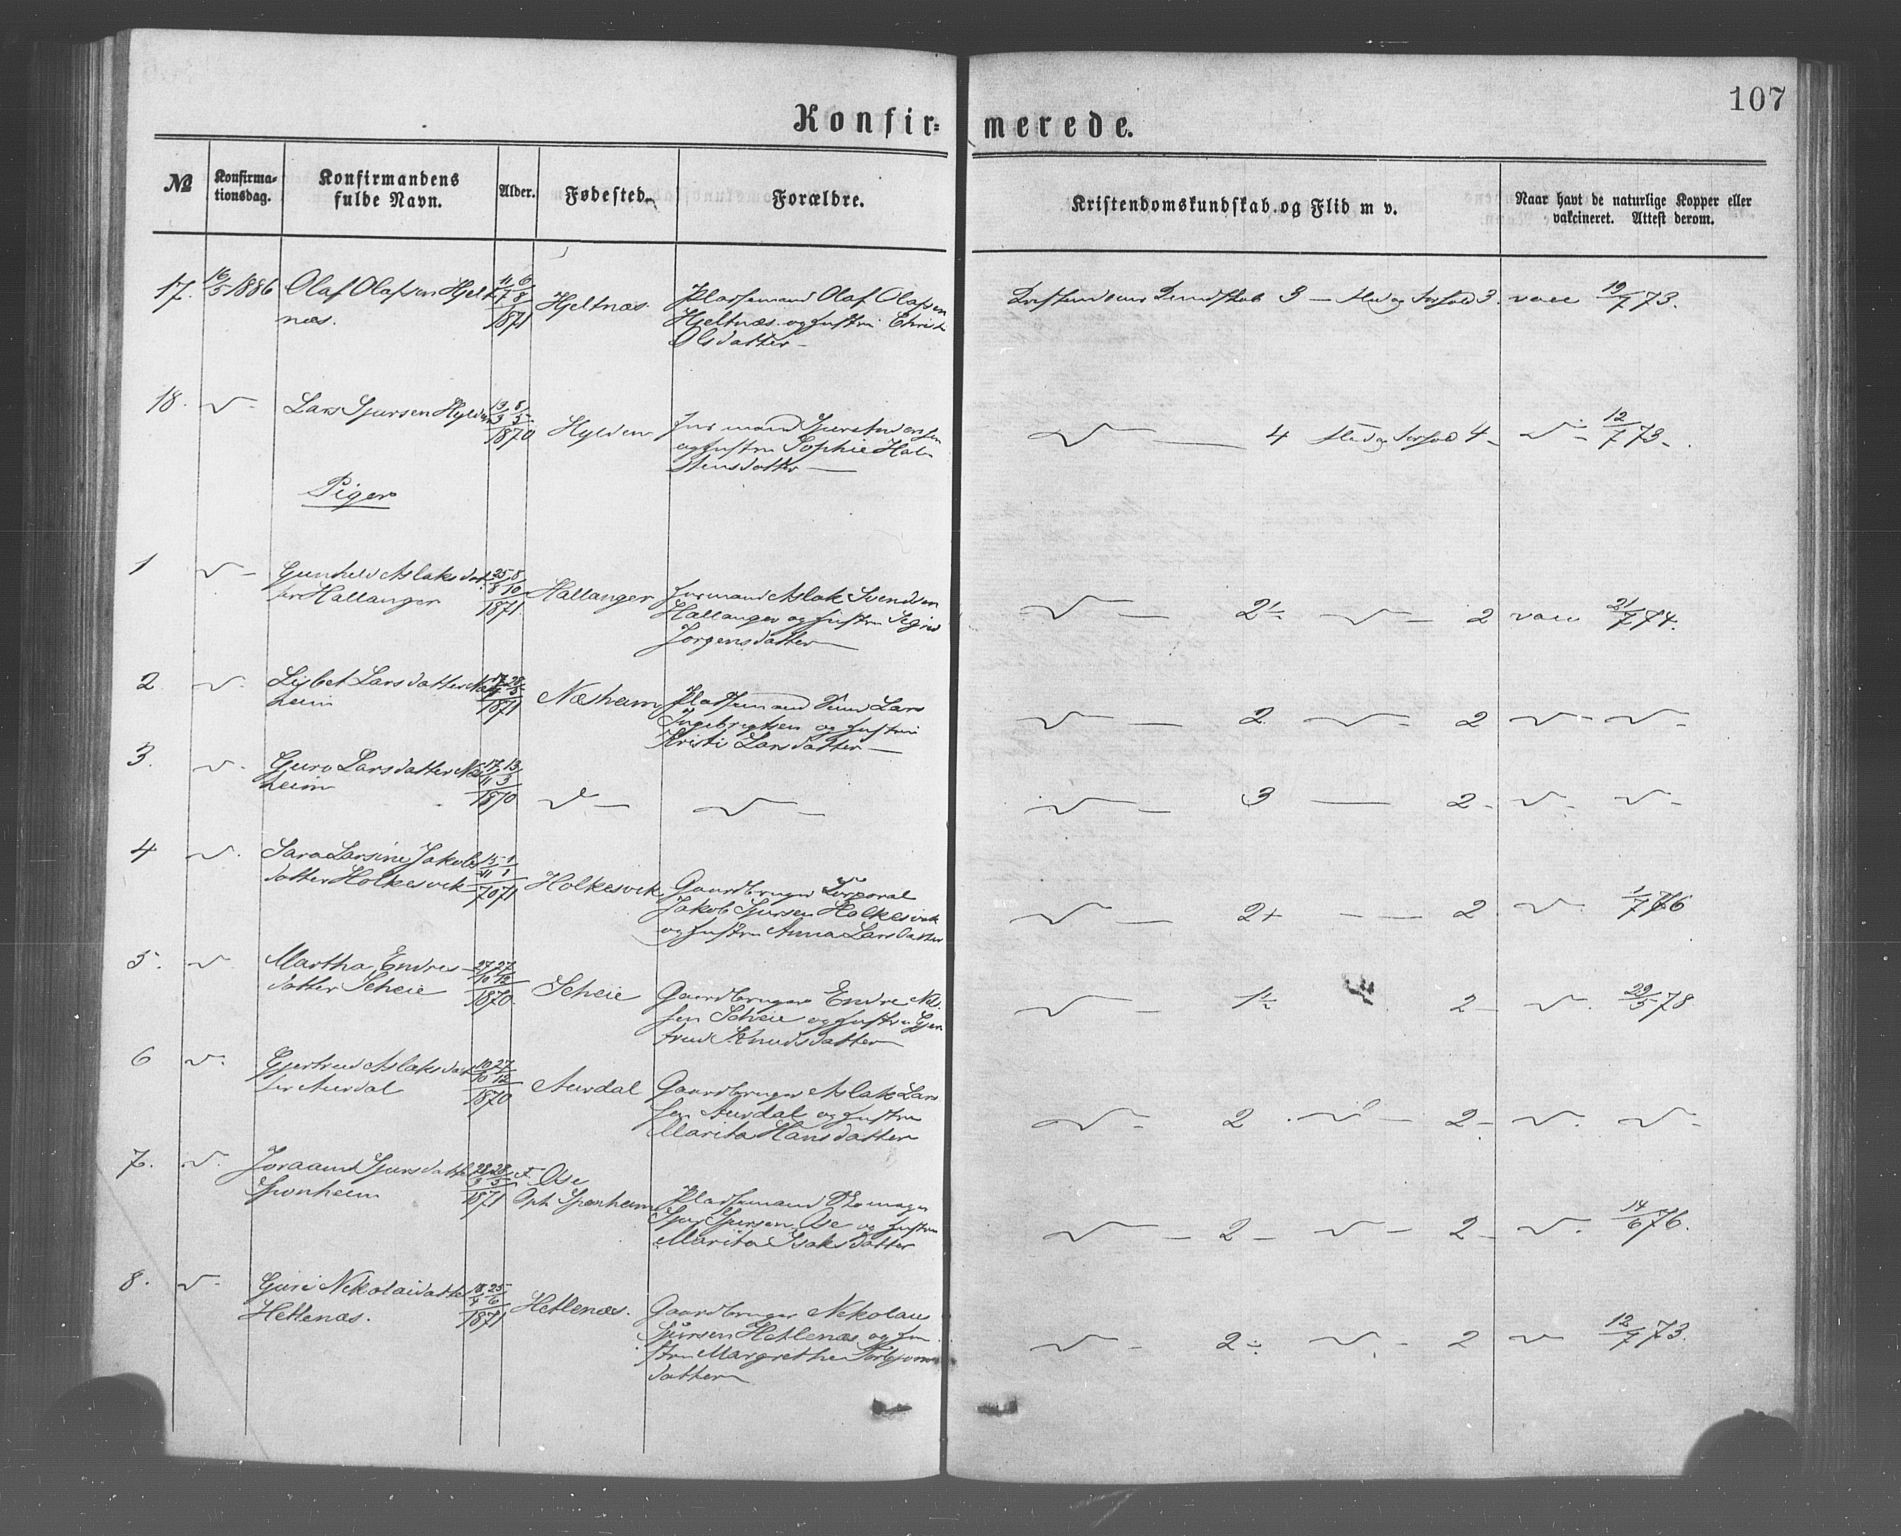 107
Konfir- merede.
№ Konfirma-
tionsdag. Konfirmandens
fulde Navn. Alder. Fødested. Forældre. Kristendomskundskab og Flid m v. Naar havt de naturlige Kopper eller
vakcineret. Attest derom.
17. 16/5 1886 Olaf Olafsen Hjelt
næs. 1871 Hjeltnæs. Pladsemand Olaf Olafsen
Hjeltnæs og hustru
Olsdatter Kristendoms Kundskab 3 — flid og forhold 3. vacc 19/7 73.
18. Lars Sjursen Hylden 13/3 8/5 1870 Hylden
og hustru Sophie Hal-
stensdatter — 4 flid og forhold 4 12/7 73
Piger
1 Gunhild Aslaksdat-
ter Hallanger 25/8 8/10 1871 Hallanger Aslak Svendsen
Hallanger og hustru Sigrid
Jørgensdatter 2 2 vacc 21/7 74.
2 Lisbet Larsdatter Næs
heim 1871 Næsheim Pladsemand Lars
Ingebrigtsen og hustru
Kristi Larsdatter — 2 2
3. Guro Larsdatter Næs
heim 1870 3 — 2
4 Sara Larsine Jakobs
datter Holkesvik 15/11 1/1 70 71 Holkesvik Gaardbruger Korporal
Jakob Sjursen Holkesvik
og hustru Anna Larsdatter 2+ — — 2 1/7 76
5. Martha Endres-
datter Scheie 27/10 27/12 1870 Scheie Gaardbruger Endre Nil
sen Scheie og hustru Gjer
trud Knudsdatter 2 29/5 78
6 Gjertrud Aslaksdat
ter Aurdal 10/10 27/12 1870 Aurdal Gaardbruger Aslak Lars
sen Aurdal og hustru
Marita Hansdatter 2 2
7. Sjursdatter
Sponheim 28/3 28/5 1871 f. Ose
Oph. Sponheim Pladsemand Skomager
Sjur Sjursen Ose og hustru
Marita Isaksdatter 2 2 14/6 76.
8. Guri Nikolaidatter
Hetlenæs. 18/4 25/6 1871 Hetlenæs. Gaardbruger Nikolaus
Sjursen Hetlenæs og hu
stru Margrethe Torbjørns
datter 2 2 12/9 73.